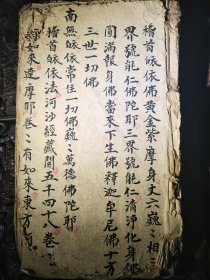 稽首皈依佛黄金紫摩身丈六巍〻相三
界號能仁佛陀耶三界號能仁濟淨化身佛
圓滿報身佛當來下生佛釋迦牟尼佛十方
三世一切佛
南無皈依常住一切佛巍〻萬德佛陀耶
稽首皈依法河沙經藏開五千四十八卷
행如來達摩耶卷〻有如來東方